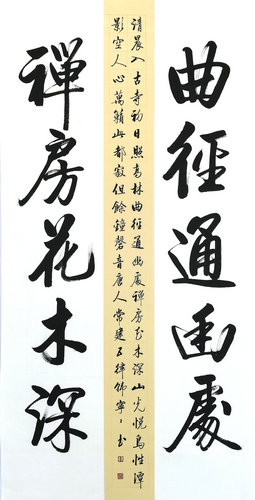 曲径通幽處
禪房花木深
清晨入古寺初日照高林曲径通幽處禪房花木深山光悦鳥性潭
影空人心萬籟此都寂但餘鐘磬音唐人常建五律